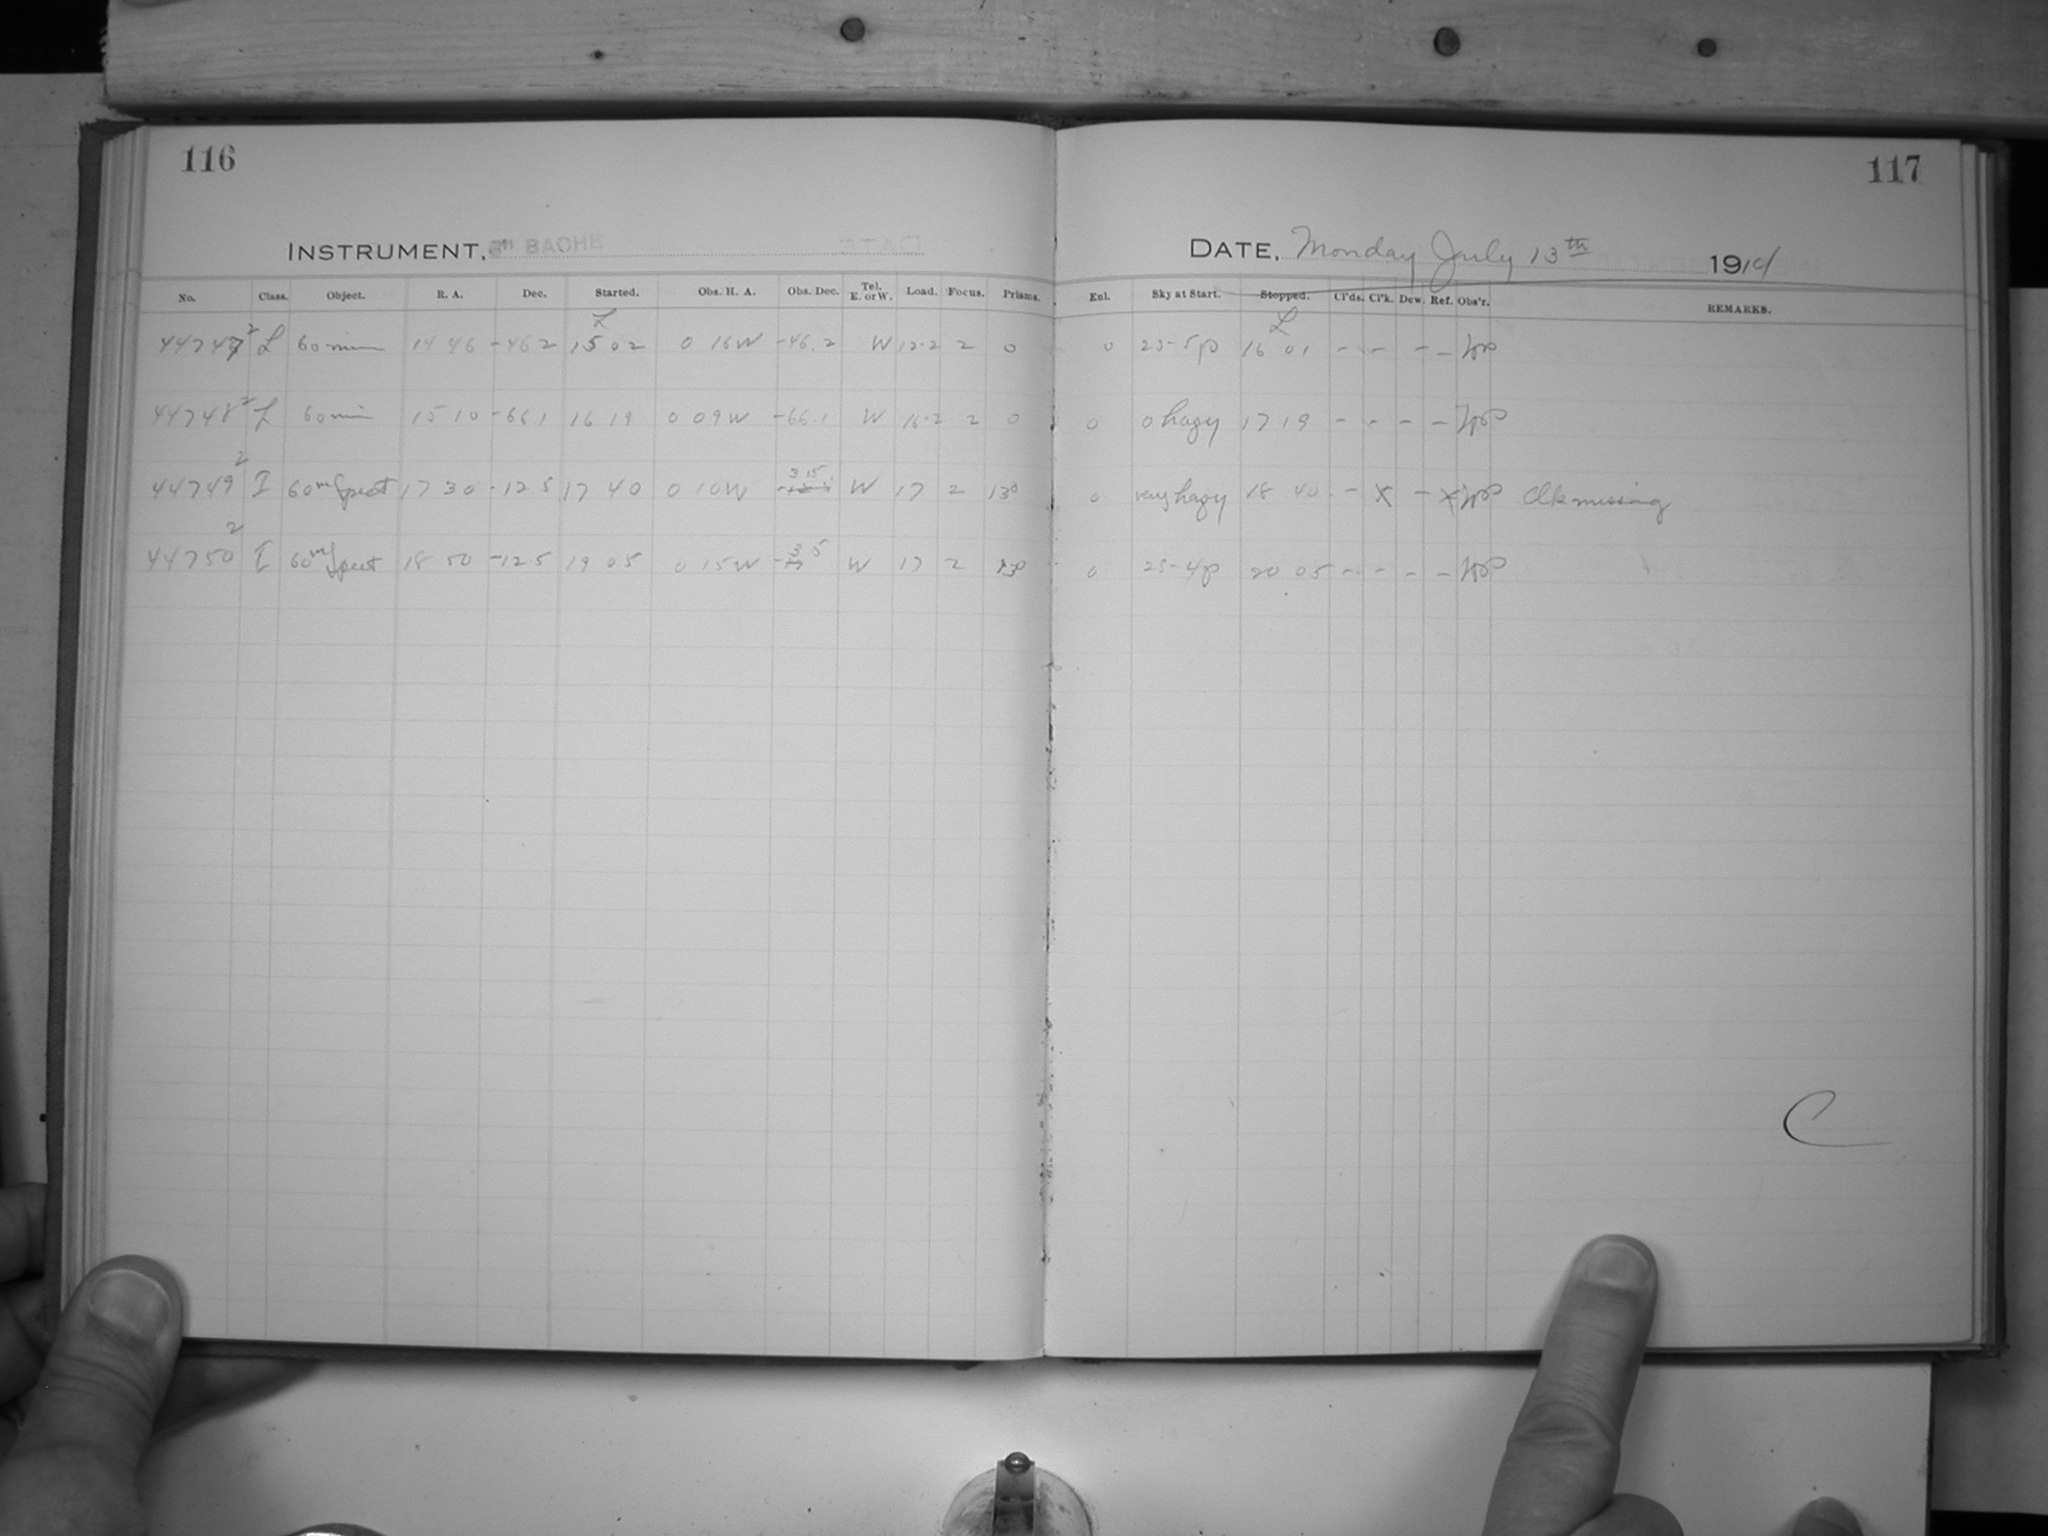 116
117
INSTRUMENT, 8" BACHE
DATE, Monday July 13th 1914
No. Class. Object. R. A. Dec. Started. Obs. H. A. Obs. Dec. Tel. E. or W. Load. Focus. Prisms. Enl. Sky at Start. Stopped. Cl'ds. Cl'k. Dew. Ref. Obs'r. REMARKS.
L L
44747 2 L 60 min 14 46 -46 2 15 02 0 16W -46.2 W 12-2 2 0 0 25-5p 16 01 - - - -
44748 2 L 60 min 15 10 -66 1 16 19 0 09W -66.1 W 16-2 2 0 0 0 hazy 17 19 - - - -
44749 2 I 60m Spect 17 30 -12 5 17 40 0 10W 3 15 W 17 2 130 0 very hazy 18 40 - X - X Clk missing
44750 2 I 60m Spect 18 50 -12 5 19 05 0 15W 3 5 W 17 2 130 0 25-4p 20 05 - - - -
C